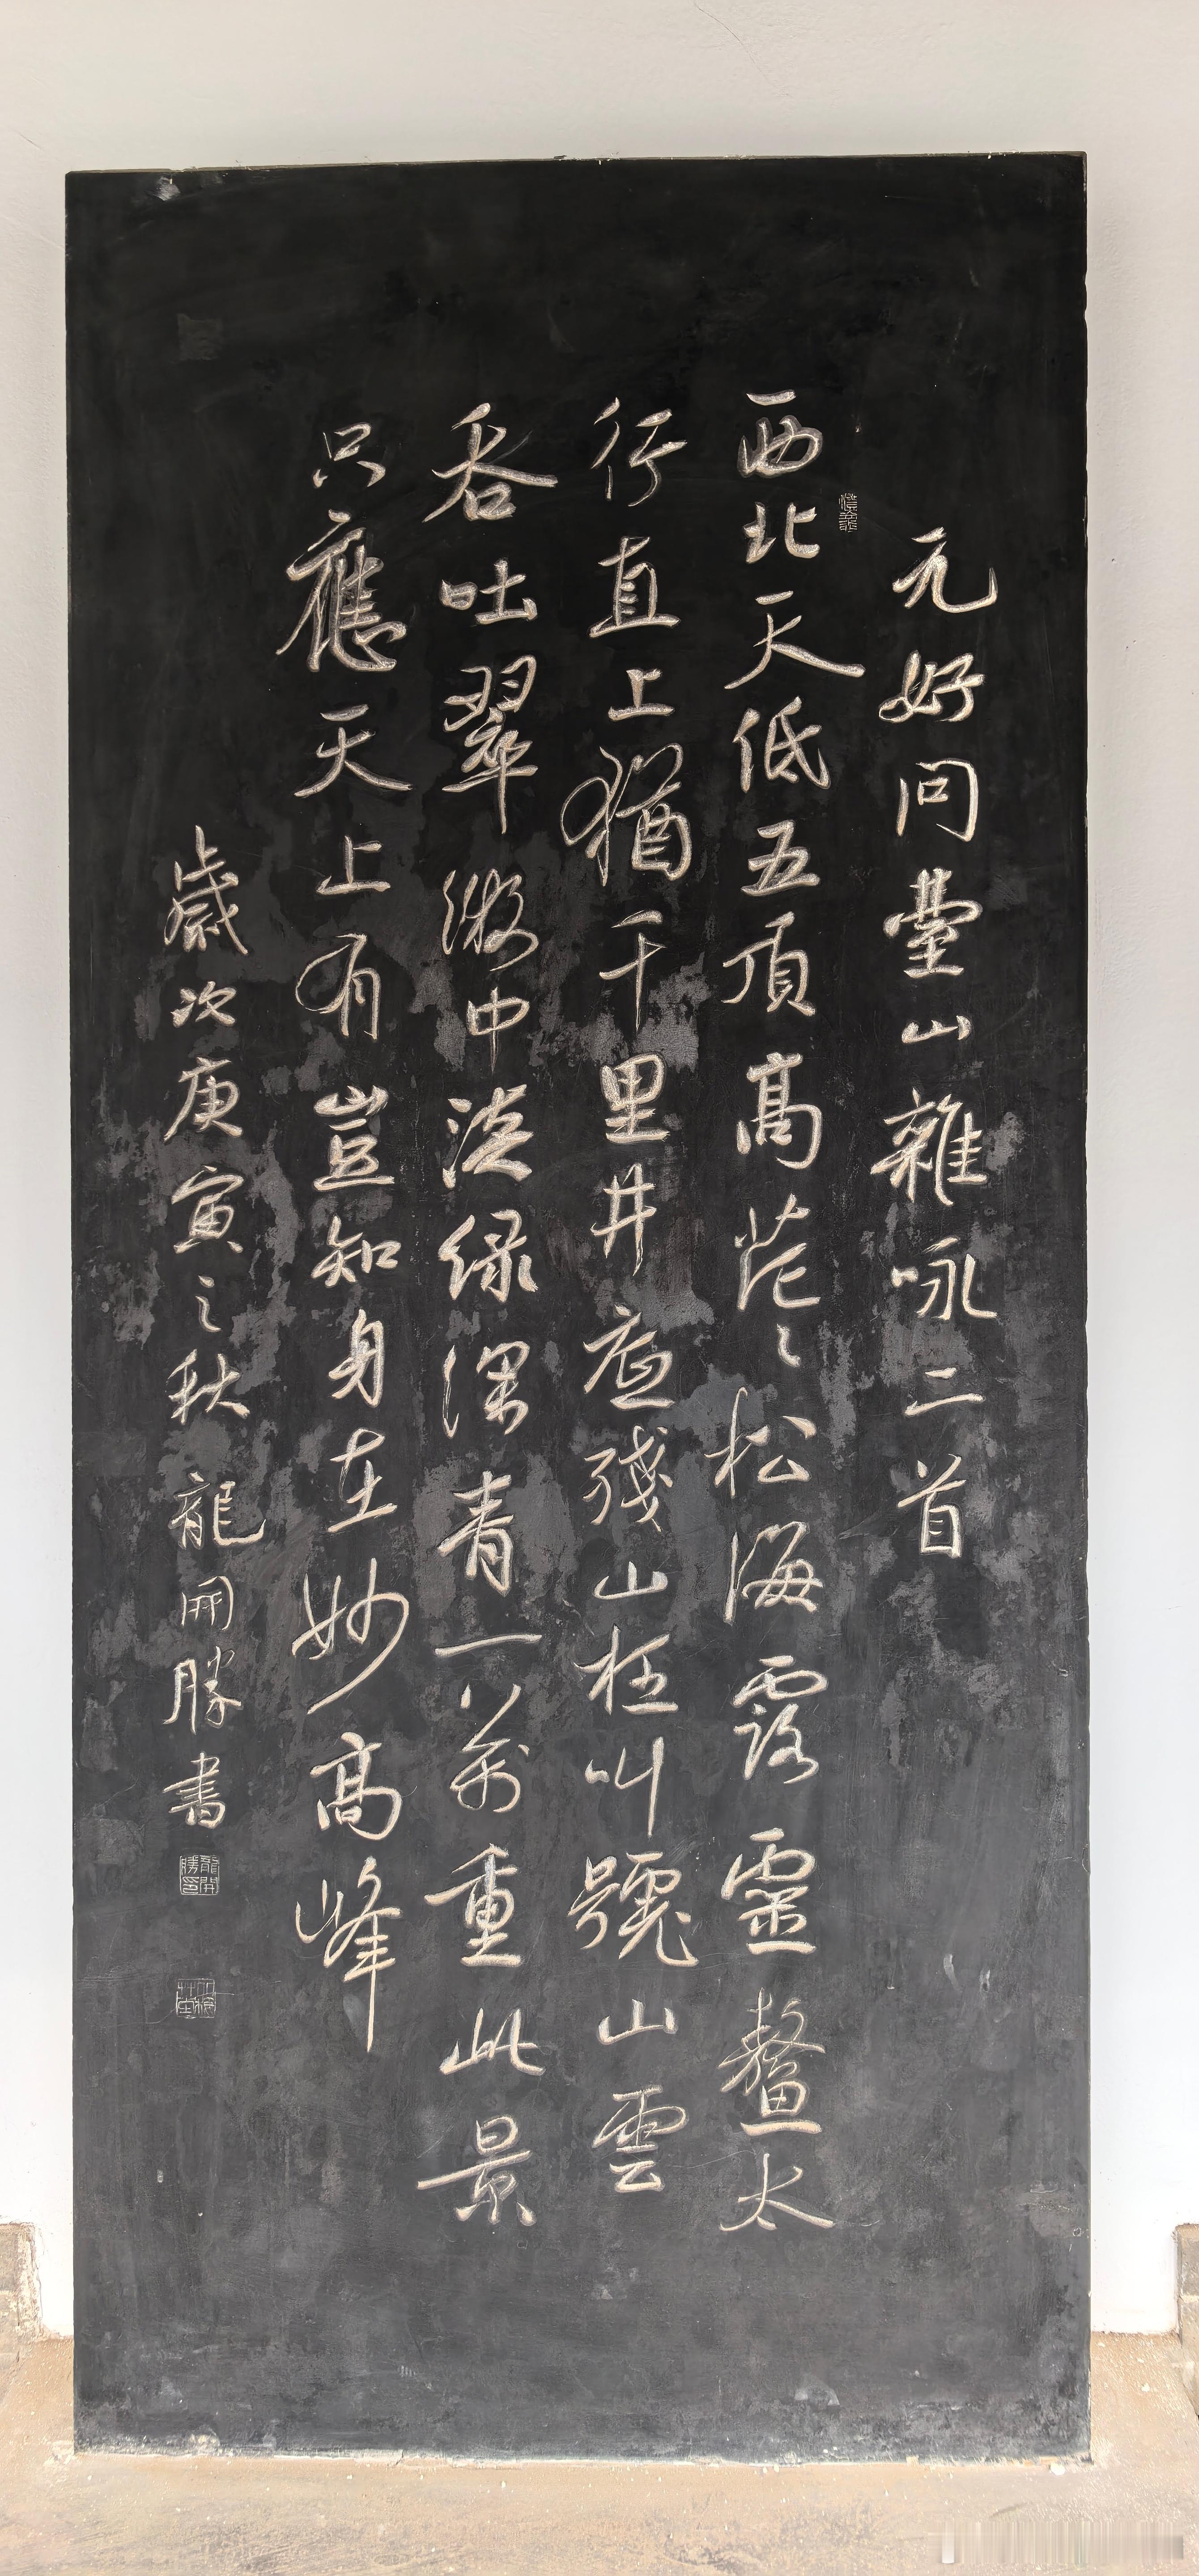 元好问臺山雜咏二首
西北天低五頂高茫々松海露靈鼇太
行直上猶千里井底殘山枉叫號山雲
吞吐翠微中淡绿深青一萬重此景
只應天上有豈知身在妙高峰
歲次庚寅之秋 龍開勝書
龍開勝印